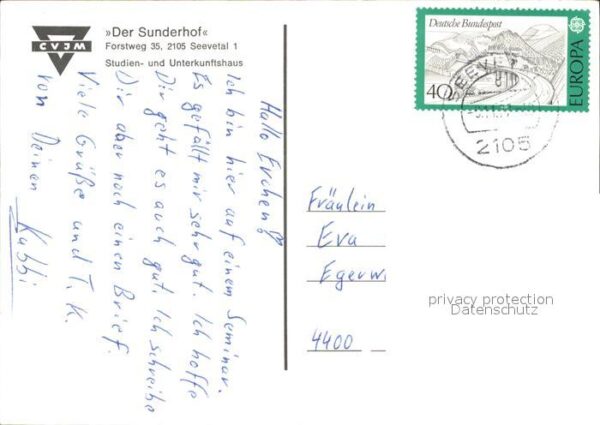 CVJM
»Der Sunderhof«
Forstweg 35, 2105 Seevetal 1
Studien- und Unterkunftshaus
Hallo Evchen!
Ich bin hier auf einem Seminar.
Es gefällt mir sehr gut. Ich hoffe
Dir geht es auch gut. Ich schreibe
Dir aber noch einen Brief.
Viele Grüße und T. K.
von Deinem
Kubbi
Deutsche Bundespost
40
EUROPA
SEEVE
2105
Fräulein
Eva
Egerw
4400
privacy protection
Datenschutz